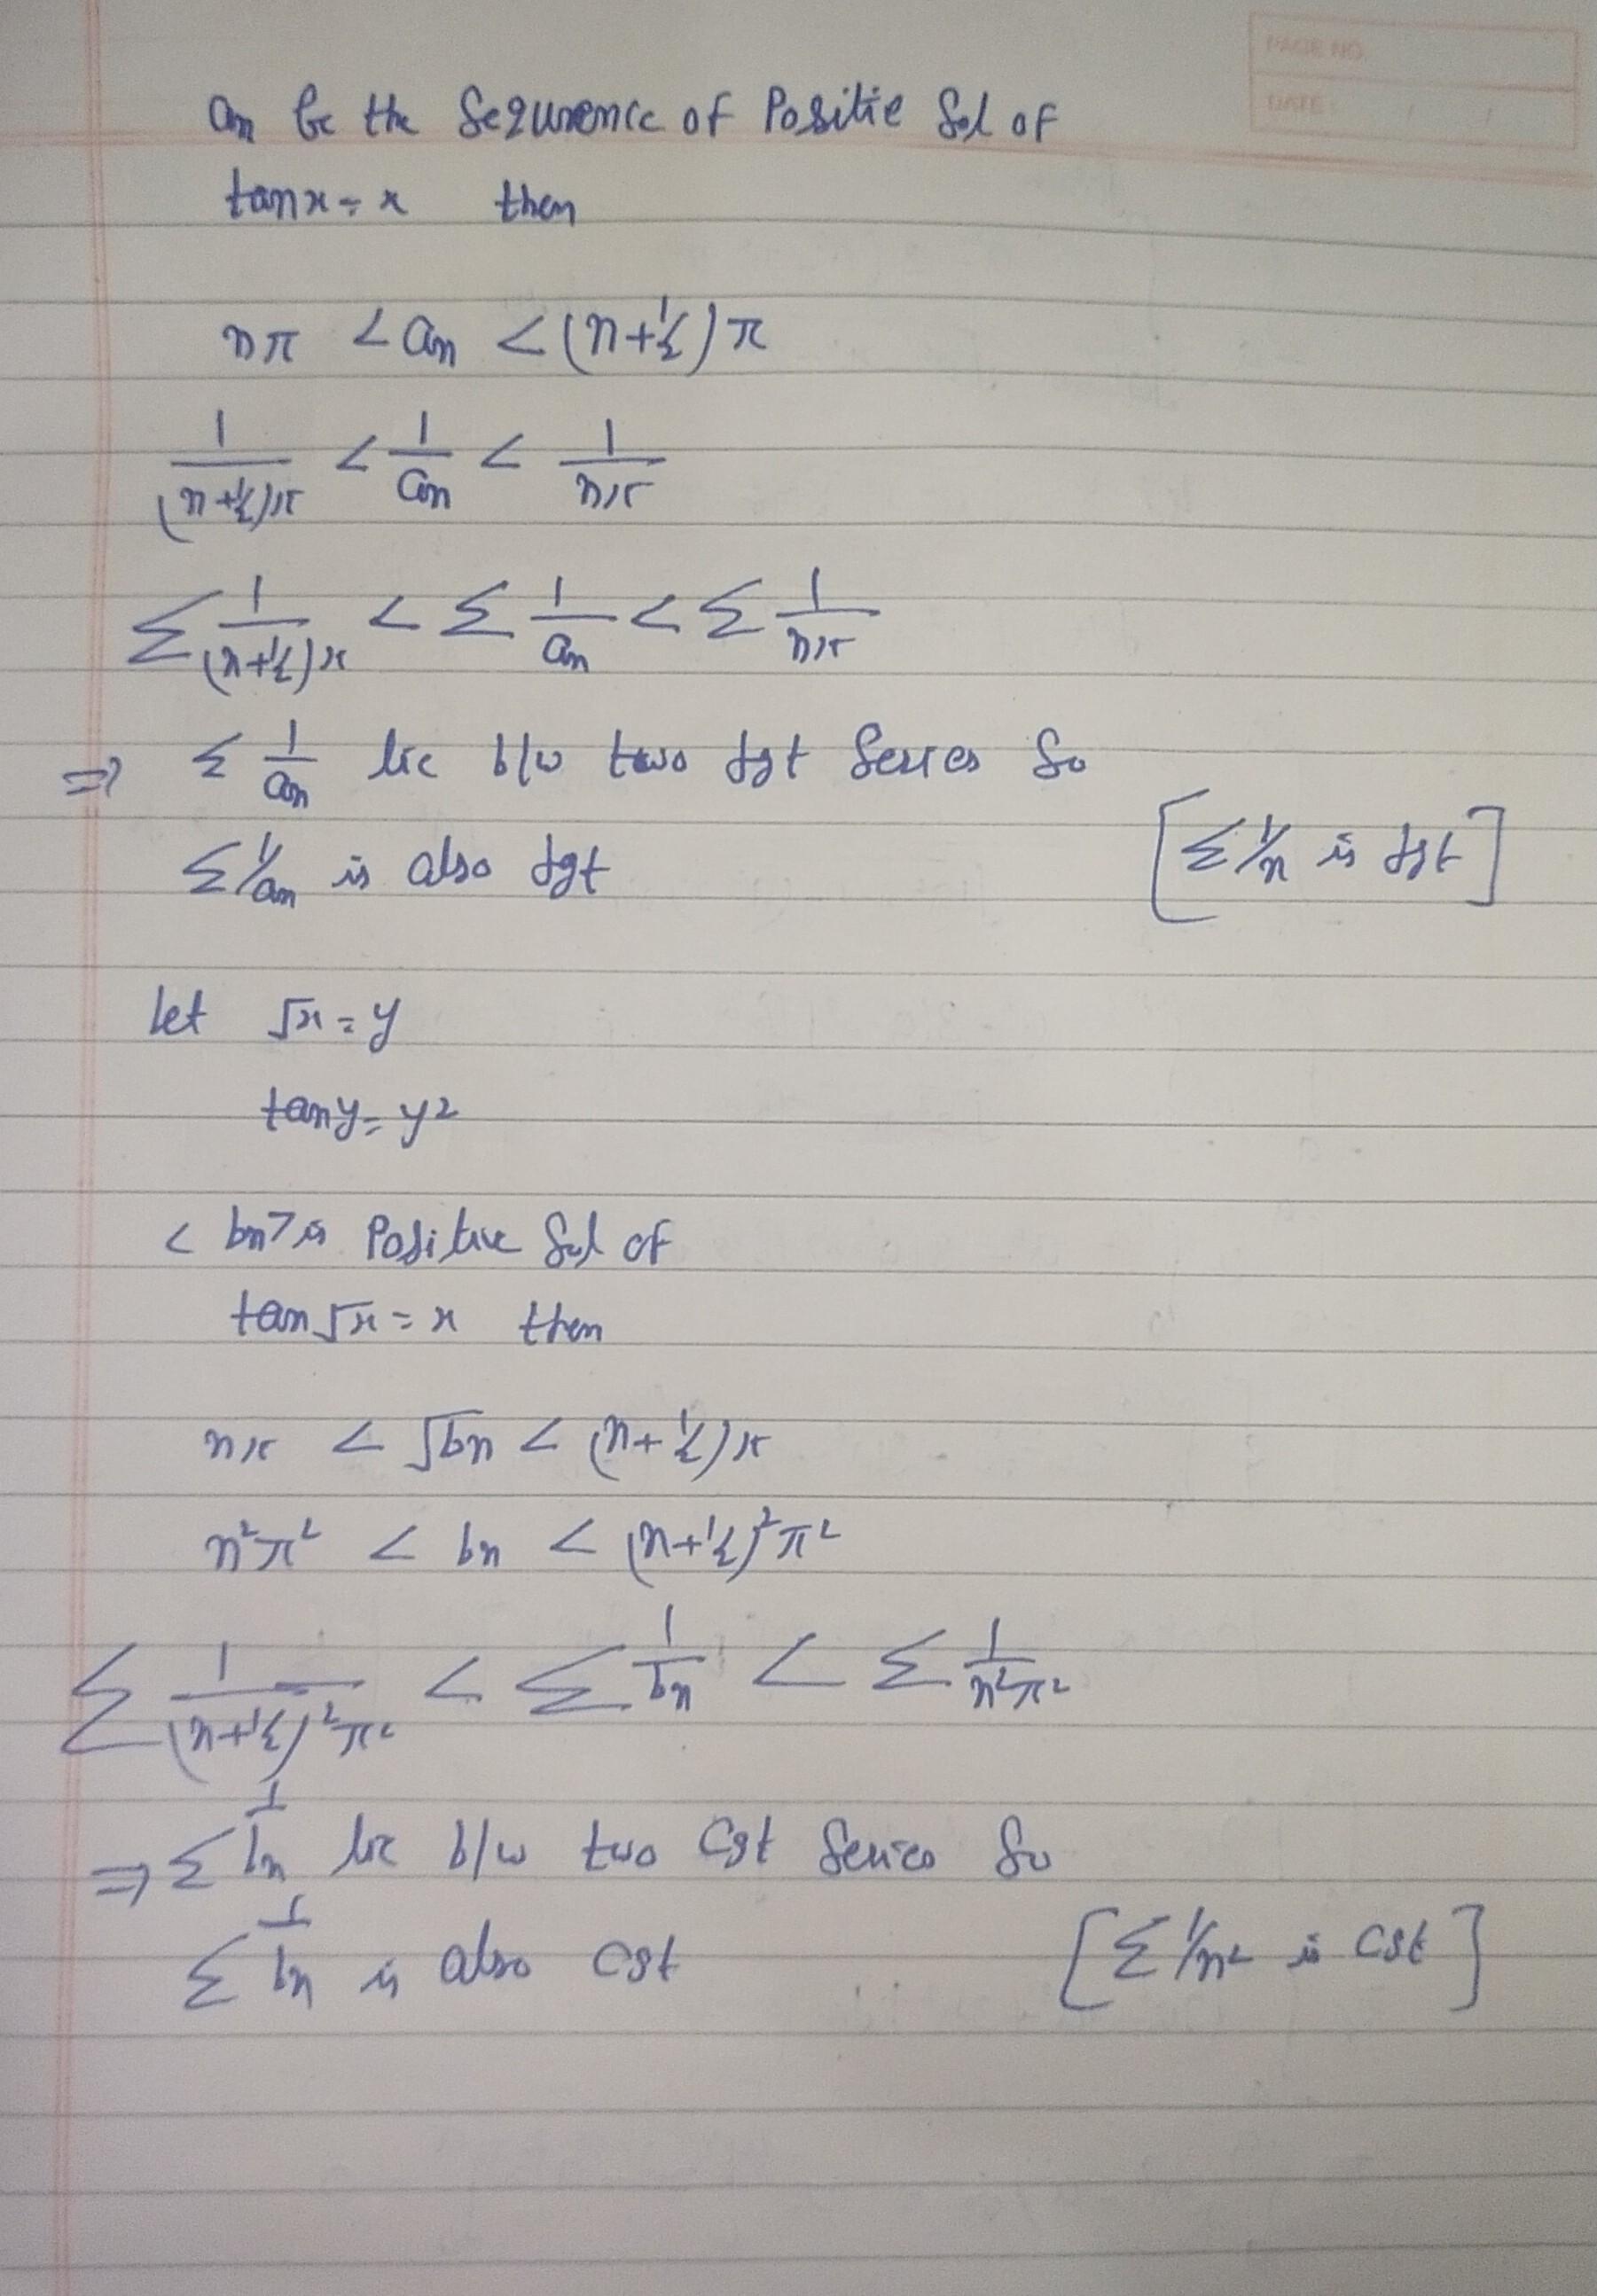 PAGE NO.
DATE: / /
an be the Sequrence of Positie Sol of
tanx = x then
nπ < an < (n+½)π
1/(n+½)π < 1/an < 1/nπ
Σ 1/(n+½)π < Σ 1/an < Σ 1/nπ
⇒ Σ 1/an lie b/w two dgt Series So
Σ 1/an is also dgt [Σ 1/n is dgt]
let √x = y
tany = y²
< bn > is Positive Sol of
tan√x = x then
nπ < √bn < (n+½)π
n²π² < bn < (n+½)²π²
Σ 1/(n+½)²π² < Σ 1/bn < Σ 1/n²π²
⇒ Σ 1/bn lie b/w two Cgt Series So
Σ 1/bn is also Cgt [Σ 1/n² is Cgt]